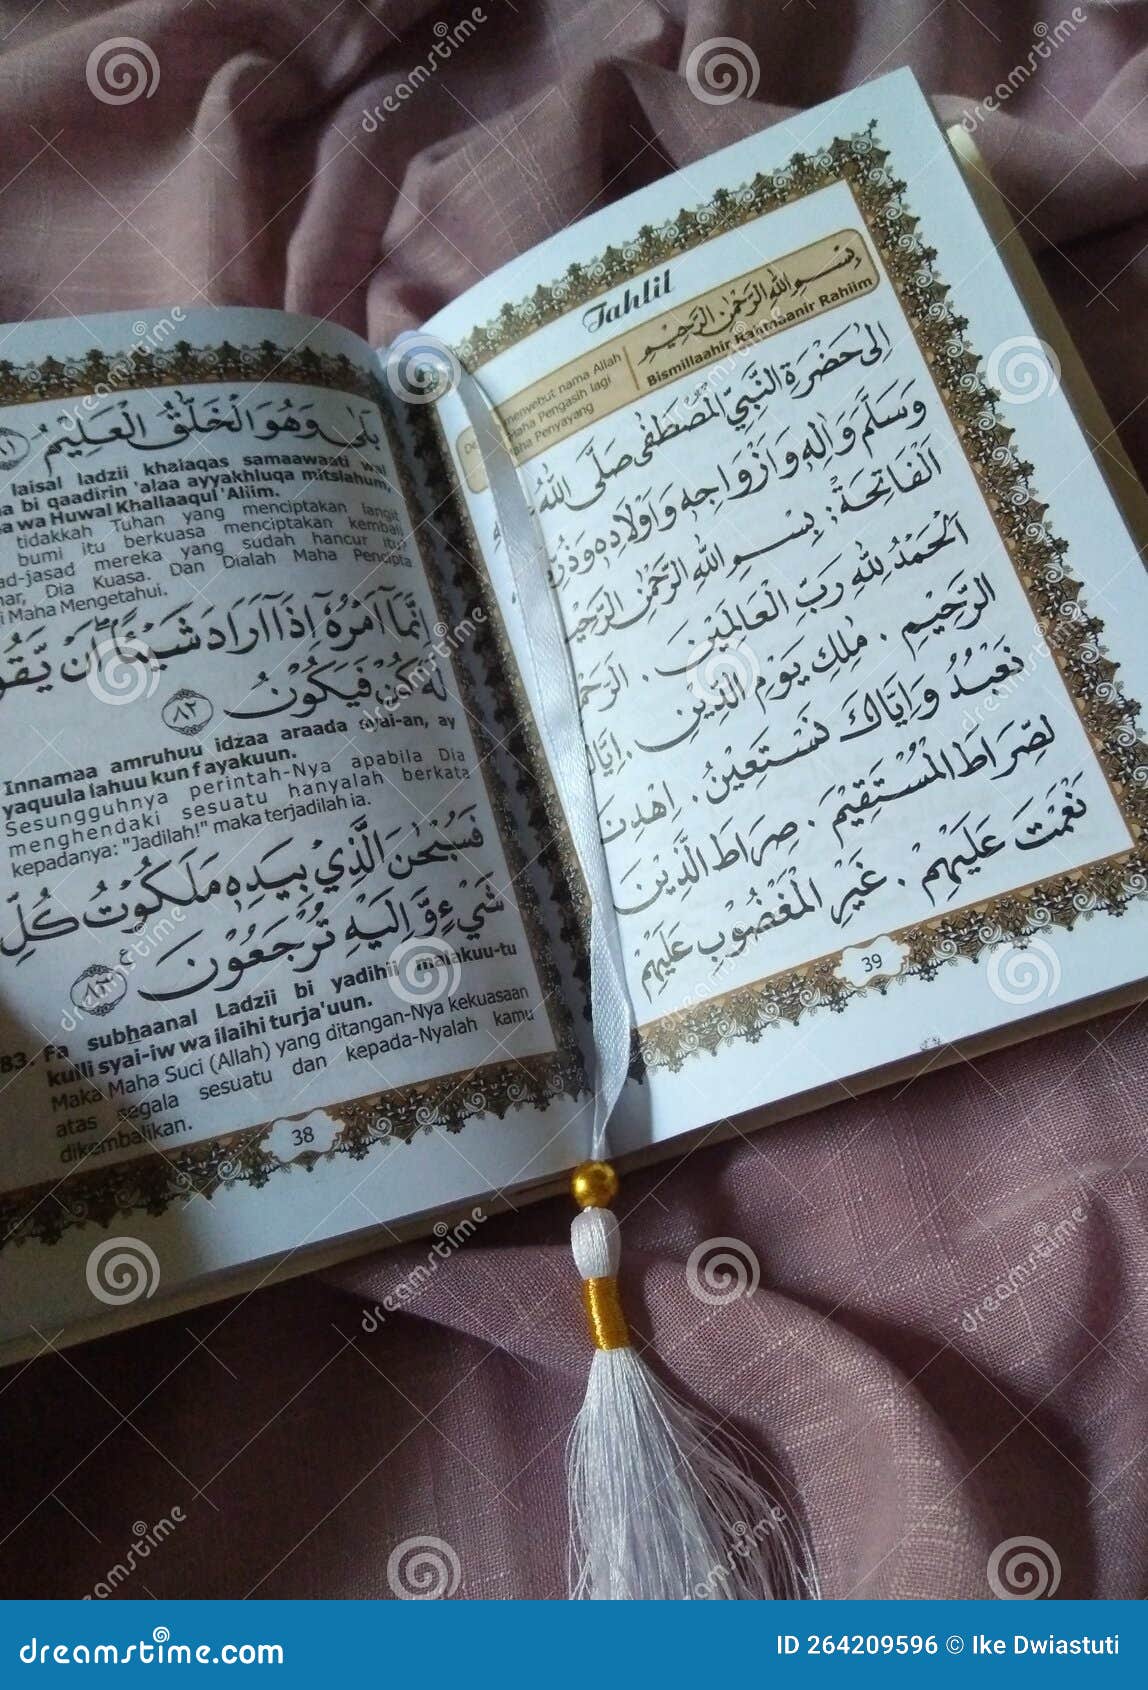 بَلٰى وَهُوَ الْخَلّٰقُ الْعَلِيْمُ ٨١
laisal ladzii khalaqas samaawaati wal
bi qaadirin 'alaa ayyakhluqa mitslahum,
wa Huwal Khallaaqul 'Aliim.
tidakkah Tuhan yang menciptakan langit
bumi itu berkuasa menciptakan kembali
jasad mereka yang sudah hancur itu?
Dia Kuasa. Dan Dialah Maha Pencipta
Maha Mengetahui.
اِنَّمَآ اَمْرُهٗٓ اِذَآ اَرَادَ شَيْـًٔا اَنْ يَّقُوْ
لَهٗ كُنْ فَيَكُوْنُ ٨٢
Innamaa amruhuu idzaa araada syai-an, ay
yaquula lahuu kun fayakuun.
Sesungguhnya perintah-Nya apabila Dia
menghendaki sesuatu hanyalah berkata
kepadanya: "Jadilah!" maka terjadilah ia.
فَسُبْحٰنَ الَّذِيْ بِيَدِهٖ مَلَكُوْتُ كُلِّ
شَيْءٍ وَّاِلَيْهِ تُرْجَعُوْنَ ٨٣
83. Fa subhaanal Ladzii bi yadihii malakuu-tu
kulli syai-iw wa ilaihi turja'uun.
Maka Maha Suci (Allah) yang ditangan-Nya kekuasaan
atas segala sesuatu dan kepada-Nyalah kamu
dikembalikan.
38
Tahlil
بِسْمِ اللهِ الرَّحْمٰنِ الرَّحِيْمِ
Bismillaahir Rahmaanir Rahiim
menyebut nama Allah
Maha Pengasih lagi
Maha Penyayang
اِلٰى حَضْرَةِ النَّبِيِّ الْمُصْطَفٰى صَلَّى اللهُ
وَسَلَّمَ وَاٰلِهٖ وَاَزْوَاجِهٖ وَاَوْلَادِهٖ وَذُرِّ
الْفَاتِحَةُ : بِسْمِ اللهِ الرَّحْمٰنِ الرَّحِيْمِ
اَلْحَمْدُ لِلّٰهِ رَبِّ الْعَالَمِيْنَ . الرَّحْمٰ
الرَّحِيْمِ . مٰلِكِ يَوْمِ الدِّيْنِ . اِيَّاكَ
نَعْبُدُ وَاِيَّاكَ نَسْتَعِيْنُ . اِهْدِنَا
الصِّرَاطَ الْمُسْتَقِيْمَ . صِرَاطَ الَّذِيْنَ
اَنْعَمْتَ عَلَيْهِمْ . غَيْرِ الْمَغْضُوْبِ عَلَيْهِمْ
39
dreamstime.com
ID 264209596 © Ike Dwiastuti